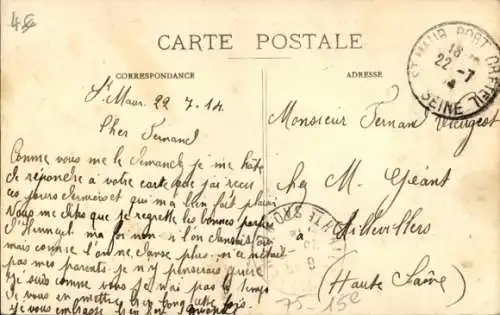 45
CARTE POSTALE
CORRESPONDANCE
ADRESSE
ST MAUR PORT CRETEIL
18
22 - 7
SEINE
St Maur 22 7 14
Cher Fernand
Comme vous me le demandez je me hâte
de répondre à votre carte que j'ai reçu
ces jours derniers et qui m'a bien fait plaisir
Vous me dites que je regrette les bonnes parties
ma foi non si l'on dansait
mais comme l'on ne danse plus, si ce n'était
pas mes parents je n'y penserais guère
Je suis comme vous je n'ai pas le temps
de vous en mettre long cette fois
je vous embrasse
Monsieur Fernand
chez M. Géant
Aillevillers
(Haute Saône)
75-15e